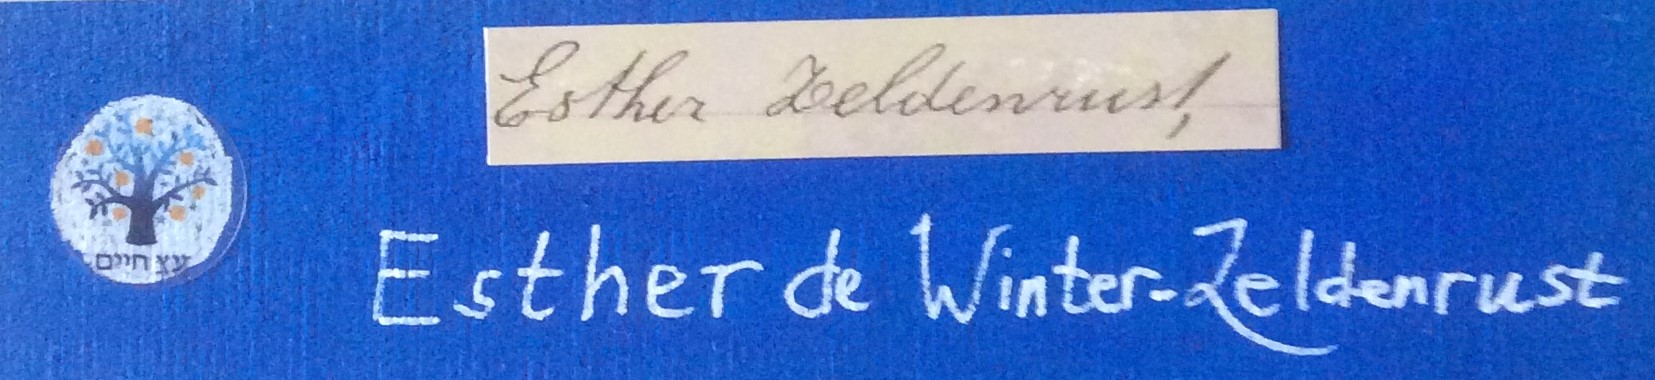 Esther Zeldenrust,
Esther de Winter-Zeldenrust
עץ חיים